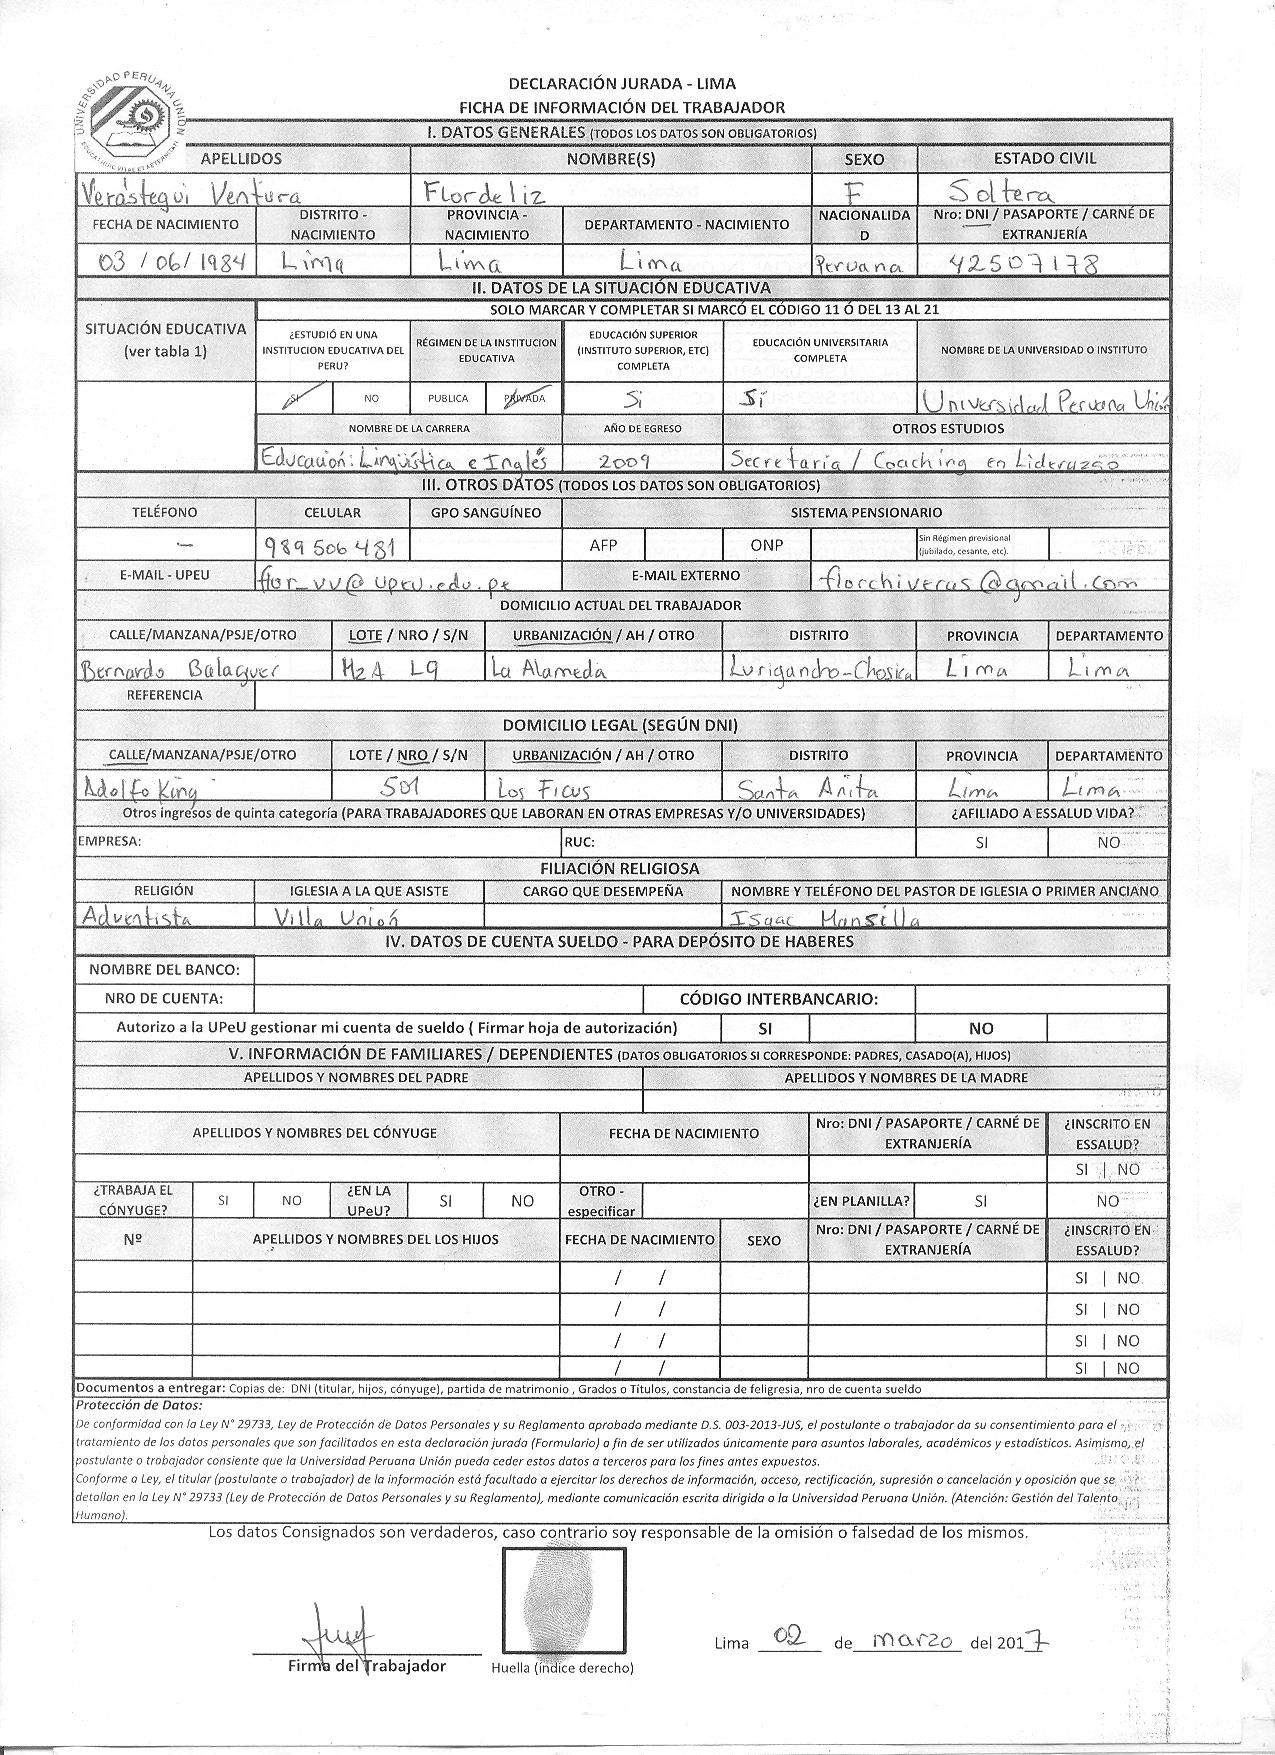 UNIVERSIDAD PERUANA UNIÓN
DECLARACIÓN JURADA - LIMA
FICHA DE INFORMACIÓN DEL TRABAJADOR
I. DATOS GENERALES (TODOS LOS DATOS SON OBLIGATORIOS)
APELLIDOS NOMBRE(S) SEXO ESTADO CIVIL
Verástegui Ventura Flordeliz F Soltera
FECHA DE NACIMIENTO DISTRITO - NACIMIENTO PROVINCIA - NACIMIENTO DEPARTAMENTO - NACIMIENTO NACIONALIDAD Nro: DNI / PASAPORTE / CARNÉ DE EXTRANJERÍA
03 / 06 / 1984 Lima Lima Lima Peruana 42507178
II. DATOS DE LA SITUACIÓN EDUCATIVA
SITUACIÓN EDUCATIVA (ver tabla 1)
SOLO MARCAR Y COMPLETAR SI MARCÓ EL CÓDIGO 11 Ó DEL 13 AL 21
¿ESTUDIÓ EN UNA INSTITUCION EDUCATIVA DEL PERU? RÉGIMEN DE LA INSTITUCION EDUCATIVA EDUCACIÓN SUPERIOR (INSTITUTO SUPERIOR, ETC) COMPLETA EDUCACIÓN UNIVERSITARIA COMPLETA NOMBRE DE LA UNIVERSIDAD O INSTITUTO
SI NO PUBLICA PRIVADA Si Sí Universidad Peruana Unión
NOMBRE DE LA CARRERA AÑO DE EGRESO OTROS ESTUDIOS
Educación: Lingüística e Inglés 2009 Secretaria / Coaching en Liderazgo
III. OTROS DATOS (TODOS LOS DATOS SON OBLIGATORIOS)
TELÉFONO CELULAR GPO SANGUÍNEO SISTEMA PENSIONARIO
- 989 506 481 AFP ONP Sin Régimen previsional (jubilado, cesante, etc).
E-MAIL - UPEU flor_vv@upeu.edu.pe E-MAIL EXTERNO florchiveras@gmail.com
DOMICILIO ACTUAL DEL TRABAJADOR
CALLE/MANZANA/PSJE/OTRO LOTE / NRO / S/N URBANIZACIÓN / AH / OTRO DISTRITO PROVINCIA DEPARTAMENTO
Bernardo Balaguer MzA L9 La Alameda Lurigancho-Chosica Lima Lima
REFERENCIA
DOMICILIO LEGAL (SEGÚN DNI)
CALLE/MANZANA/PSJE/OTRO LOTE / NRO / S/N URBANIZACIÓN / AH / OTRO DISTRITO PROVINCIA DEPARTAMENTO
Adolfo King 501 Los Ficus Santa Anita Lima Lima
Otros ingresos de quinta categoría (PARA TRABAJADORES QUE LABORAN EN OTRAS EMPRESAS Y/O UNIVERSIDADES) ¿AFILIADO A ESSALUD VIDA?
EMPRESA: RUC: SI NO
FILIACIÓN RELIGIOSA
RELIGIÓN IGLESIA A LA QUE ASISTE CARGO QUE DESEMPEÑA NOMBRE Y TELÉFONO DEL PASTOR DE IGLESIA O PRIMER ANCIANO
Adventista Villa Unión Isaac Mansilla
IV. DATOS DE CUENTA SUELDO - PARA DEPÓSITO DE HABERES
NOMBRE DEL BANCO:
NRO DE CUENTA: CÓDIGO INTERBANCARIO:
Autorizo a la UPeU gestionar mi cuenta de sueldo ( Firmar hoja de autorización) SI NO
V. INFORMACIÓN DE FAMILIARES / DEPENDIENTES (DATOS OBLIGATORIOS SI CORRESPONDE: PADRES, CASADO(A), HIJOS)
APELLIDOS Y NOMBRES DEL PADRE APELLIDOS Y NOMBRES DE LA MADRE
APELLIDOS Y NOMBRES DEL CÓNYUGE FECHA DE NACIMIENTO Nro: DNI / PASAPORTE / CARNÉ DE EXTRANJERÍA ¿INSCRITO EN ESSALUD?
SI | NO
¿TRABAJA EL CÓNYUGE? SI NO ¿EN LA UPeU? SI NO OTRO - especificar ¿EN PLANILLA? SI NO
Nº APELLIDOS Y NOMBRES DEL LOS HIJOS FECHA DE NACIMIENTO SEXO Nro: DNI / PASAPORTE / CARNÉ DE EXTRANJERÍA ¿INSCRITO EN ESSALUD?
/ / SI | NO
/ / SI | NO
/ / SI | NO
/ / SI | NO
Documentos a entregar: Copias de: DNI (titular, hijos, cónyuge), partida de matrimonio , Grados o Títulos, constancia de feligresia, nro de cuenta sueldo
Protección de Datos:
De conformidad con la Ley N° 29733, Ley de Protección de Datos Personales y su Reglamento aprobado mediante D.S. 003-2013-JUS, el postulante o trabajador da su consentimiento para el
tratamiento de los datos personales que son facilitados en esta declaración jurada (Formulario) a fin de ser utilizados únicamente para asuntos laborales, académicos y estadísticos. Asimismo, el
postulante o trabajador consiente que la Universidad Peruana Unión pueda ceder estos datos a terceros para los fines antes expuestos.
Conforme a Ley, el titular (postulante o trabajador) de la información está facultado a ejercitar los derechos de información, acceso, rectificación, supresión o cancelación y oposición que se
detallan en la Ley N° 29733 (Ley de Protección de Datos Personales y su Reglamento), mediante comunicación escrita dirigida a la Universidad Peruana Unión. (Atención: Gestión del Talento
Humano).
Los datos Consignados son verdaderos, caso contrario soy responsable de la omisión o falsedad de los mismos.
Lima 02 de marzo del 2017
Firma del Trabajador Huella (índice derecho)